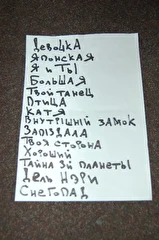 ДЕВОЧКА
ЯПОНСКАЯ
Я И ТЫ
БОЛЬШАЯ
ТВОЙ ТАНЕЦ
ПТИЦА
КАТЯ
ВНУТРІШНІЙ ЗАМОК
ЗАПІЗДАЛА
ТВОЯ СТОРОНА
ХОРОШИЙ
ТАЙНА 3Й ПЛАНЕТЫ
ДЕЛЬ НЭРИ
СНЕГОПАД